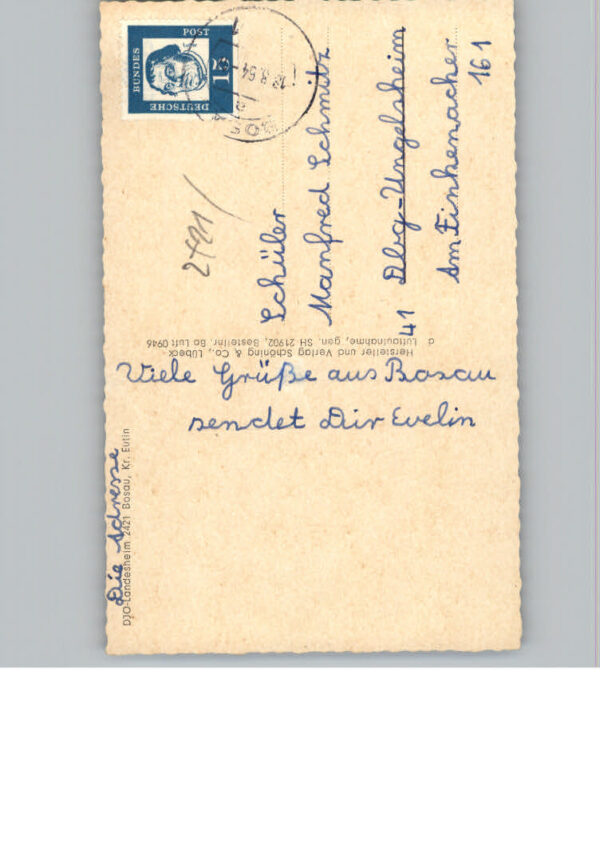 Viele Grüße aus Bosau
sendet Dir Evelin
Die Adresse
DJO-Landesheim 2421 Bosau, Kr. Eutin
Hersteller und Verlag Schöning & Co., Lübeck
d Luftaufnahme, gen. SH 21902, Bestellnr. Bo Luft 0946
Schüler
Manfred Schmitz
41 Dbg-Ungelsheim
Am Finkenacher
161
DEUTSCHE
BUNDES
POST
15